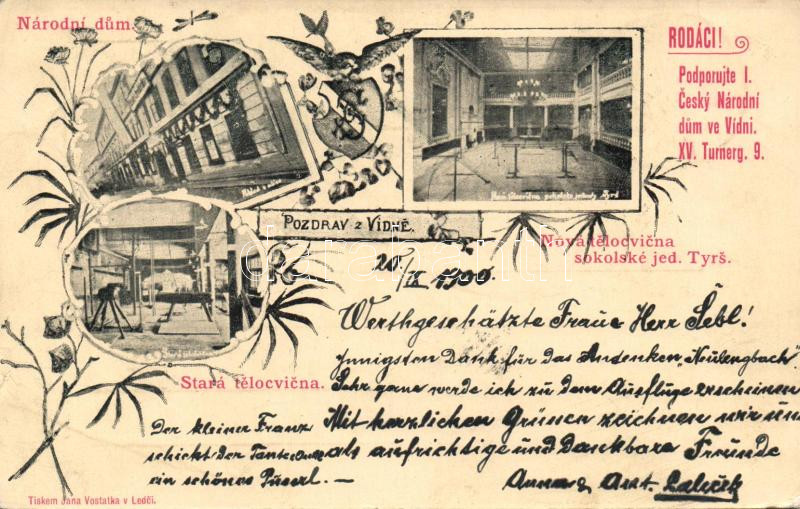 Národní dům.
RODÁCI!
Podporujte I.
Český Národní
dům ve Vídni.
XV. Turnerg. 9.
POZDRAV z VÍDNĚ.
Nová tělocvična
sokolské jed. Tyrš.
Stará tělocvična.
20/IX 1900
Werthgeschätzte Fraue Herr Šebl!
Innigsten Dank für das Andenken „Neulengbach"
Sehr gerne werde ich zu dem Ausfluge erscheinen
Mit herzlichen Grünen zeichnen wir uns
als aufrichtige und Dankbare Freunde
Anna & Ant.
Der kleiner Franz
schickt der Tante
ein schönes Pusserl. —
Tiskem Jana Vostatka v Ledči.
darabanth